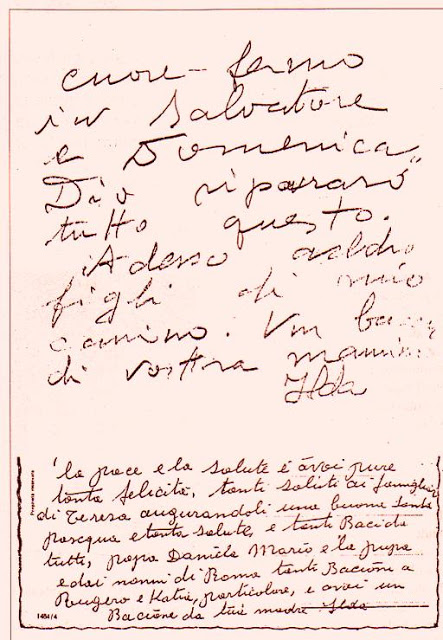 cuore - fermo
in Salvatore
e Domenica"
Dio ripararò
tutto questo.
Adesso addio
figli di mio
camino. Un
di vostra
Ilda
la pace e la salute é avoi pure
tanta felicità, tanti saluti ai
di Teresa augurandoli una buone Santa
pasqua e tanta salute, e tanti Baci da
tutti, papa Daniele Mario e la pupa
e dai nonni di Roma tante Bacione a
Rugero e Katia, particolore, e avoi un
Bacione da tuà madre Ilda
1404/4